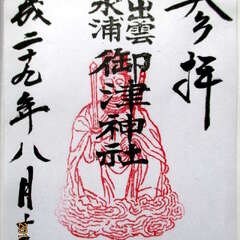 奉拝
出雲
水浦
御津神社
平成二十九年八月十